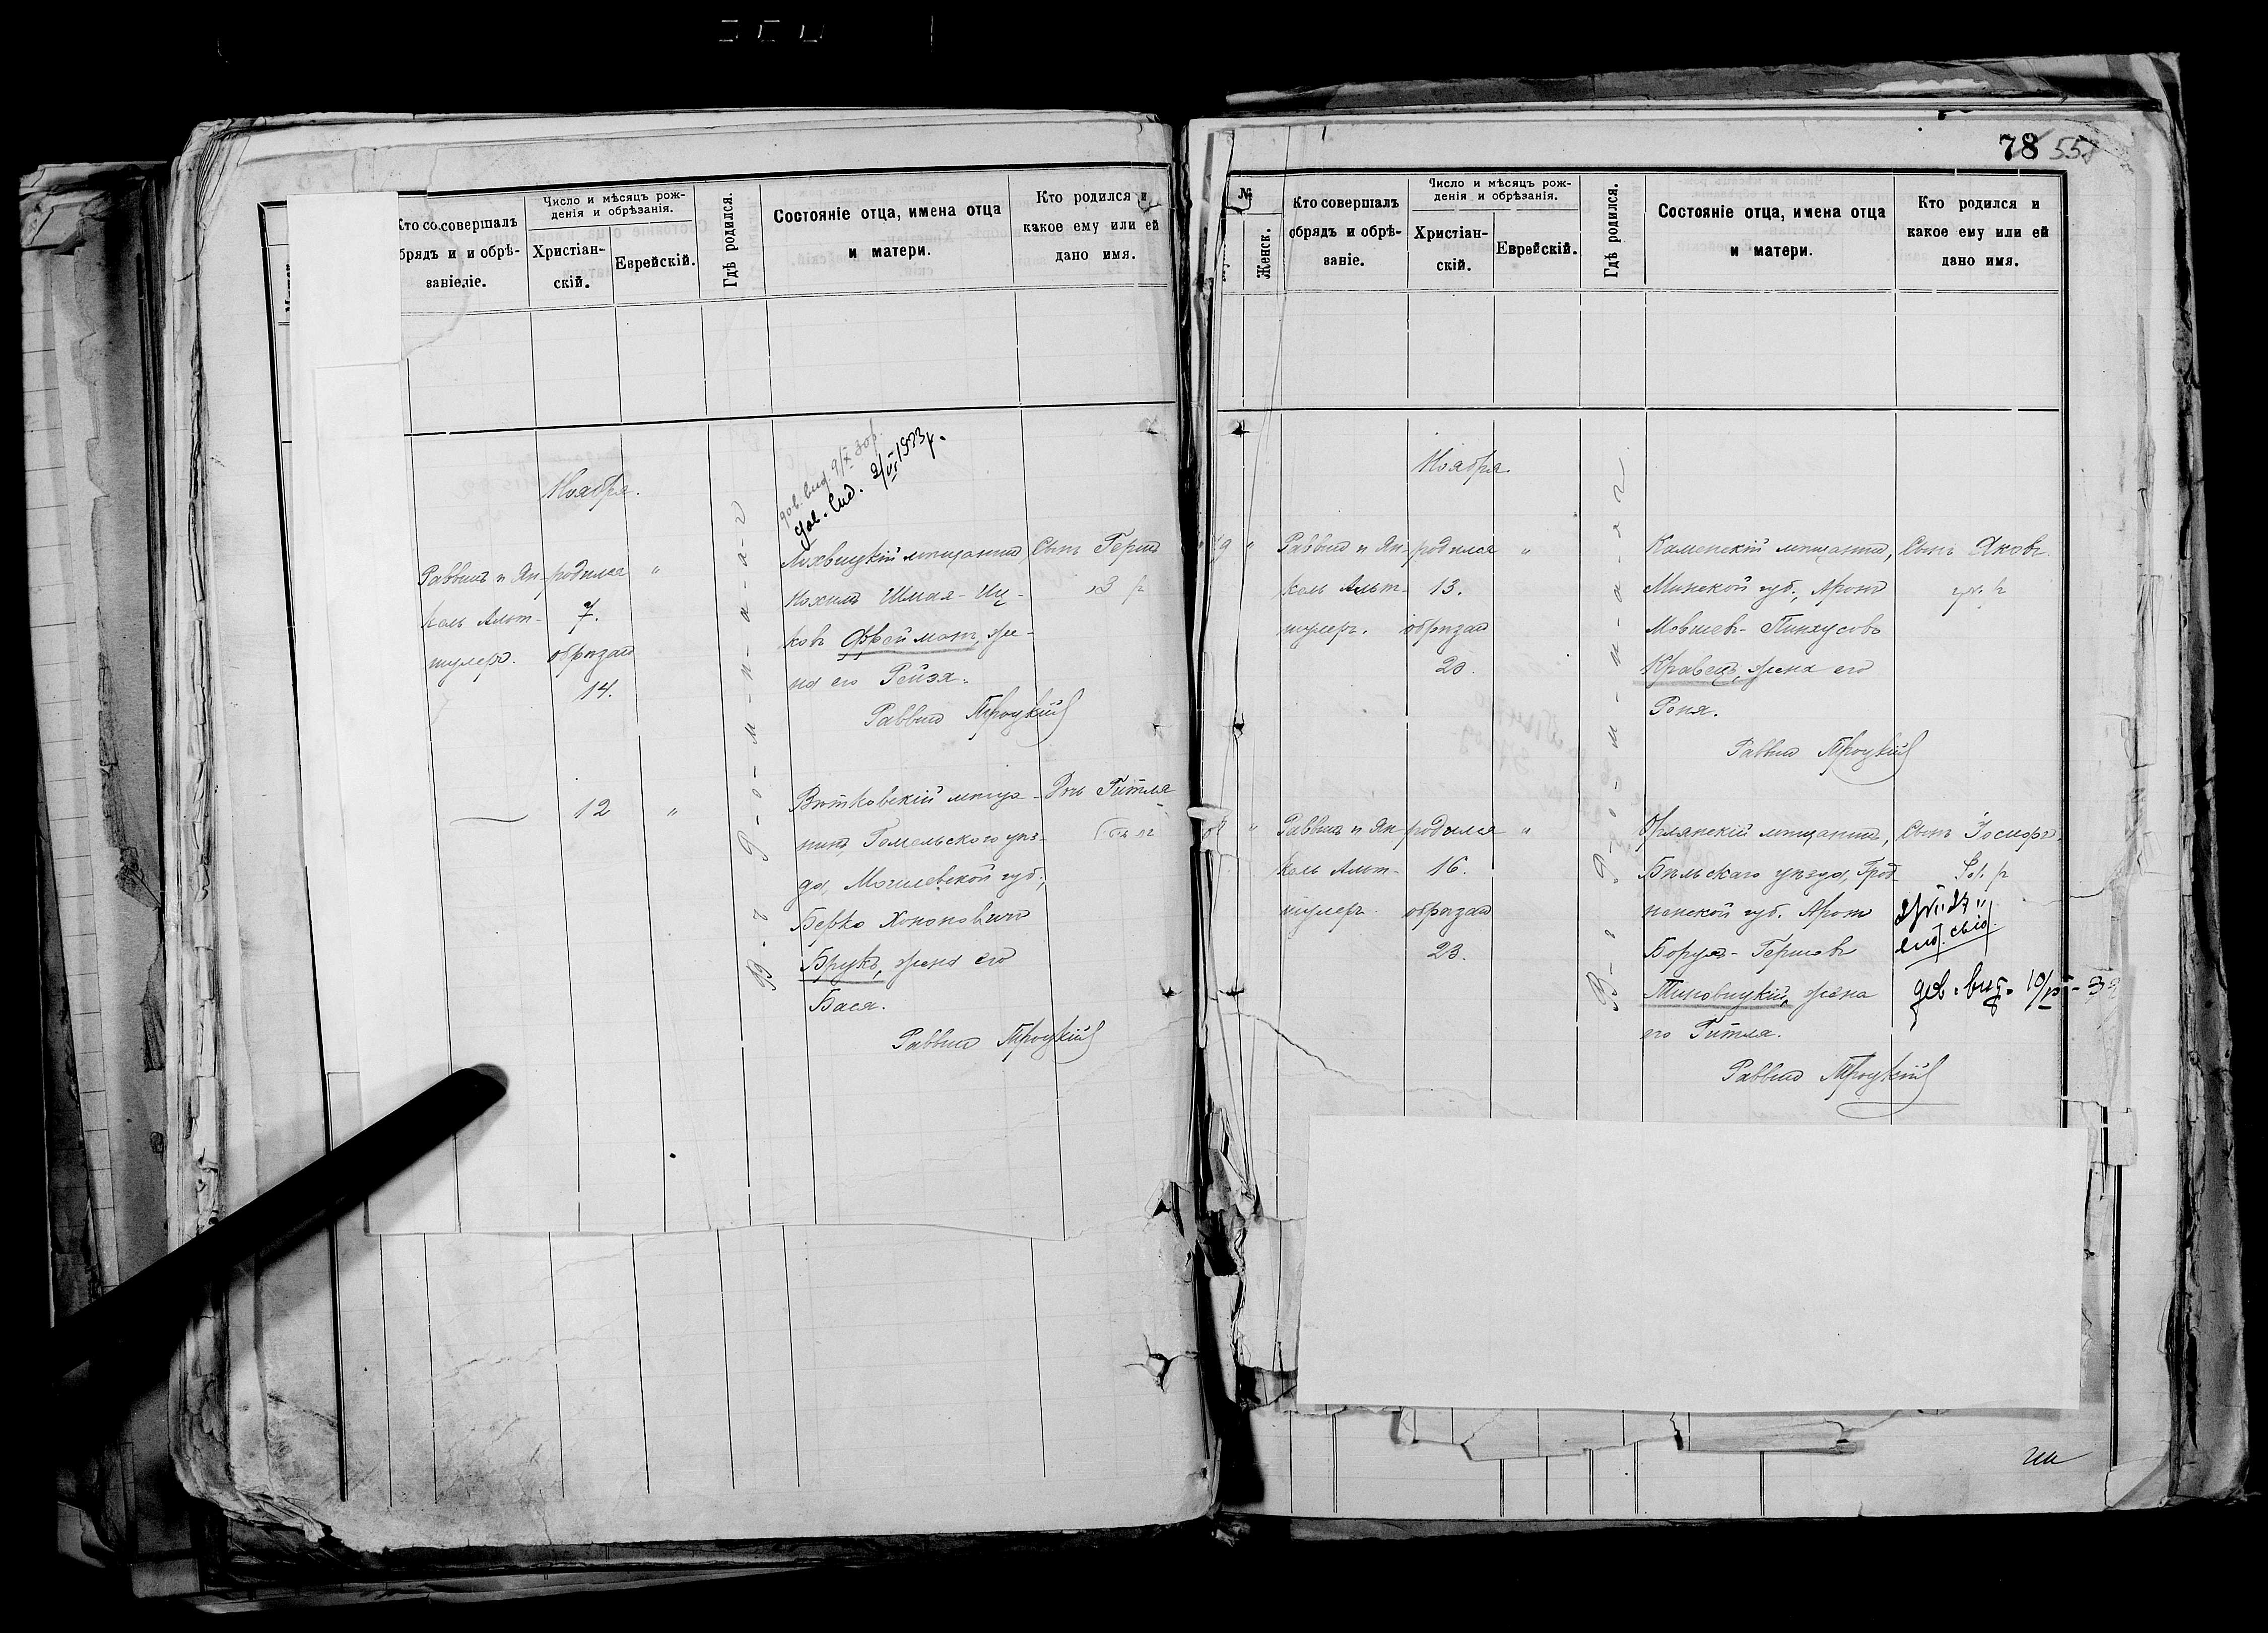 Кто со совершалъ
брядъ и и обрѣ-
заніе.ніе.
Число и мѣсяцъ рож-
денія и обрѣзанія.
Христіан-
скій.
Еврейскій.
Гдѣ родился.
Состояніе отца, имена отца
и матери.
Кто родился и
какое ему или ей
дано имя.
Ноября.
дов. вид. 9/X 30р.
дов. вид. 2/VI 1923р.
Раввинъ и Ян-
кель Альт-
шулеръ.
родился
7.
обрѣзанъ
14.
"
Лихвицкій мѣщанинъ
Шмая-Иц-
ковъ Фрейманъ, же-
на его Рейза.
Раввинъ Троцкій
Сынъ Герш
12
"
Вѣтковскій мѣща-
нинъ, Гомельскаго уѣз-
да, Могилевской губ.,
Берко Хононовичъ
Брукъ, жена его
Бася.
Раввинъ Троцкій
Дочь Гитля
78 558
№
Женск.
Кто совершалъ
обрядъ и обрѣ-
заніе.
Число и мѣсяцъ рож-
денія и обрѣзанія.
Христіан-
скій.
Еврейскій.
Гдѣ родился.
Состояніе отца, имена отца
и матери.
Кто родился и
какое ему или ей
дано имя.
Ноября.
9 "
Раввинъ и Ян-
кель Альт-
шулеръ.
родился
13.
обрѣзанъ
20.
"
Каменскій мѣщанинъ,
Минской губ., Аронъ
Мовшевъ-Пинхусовъ
Кравецъ, жена его
Роня.
Раввинъ Троцкій
Сынъ Яковъ.
"
Раввинъ и Ян-
кель Альт-
шулеръ.
родился
16.
обрѣзанъ
23.
"
Орлянскій мѣщанинъ,
Бѣльскаго уѣзда, Грод-
ненской губ. Аронъ
Борухъ-Гершовъ
Миновицкій, жена
его Гитля.
Раввинъ Троцкій
Сынъ Іосифъ.
дов. вид. 10/